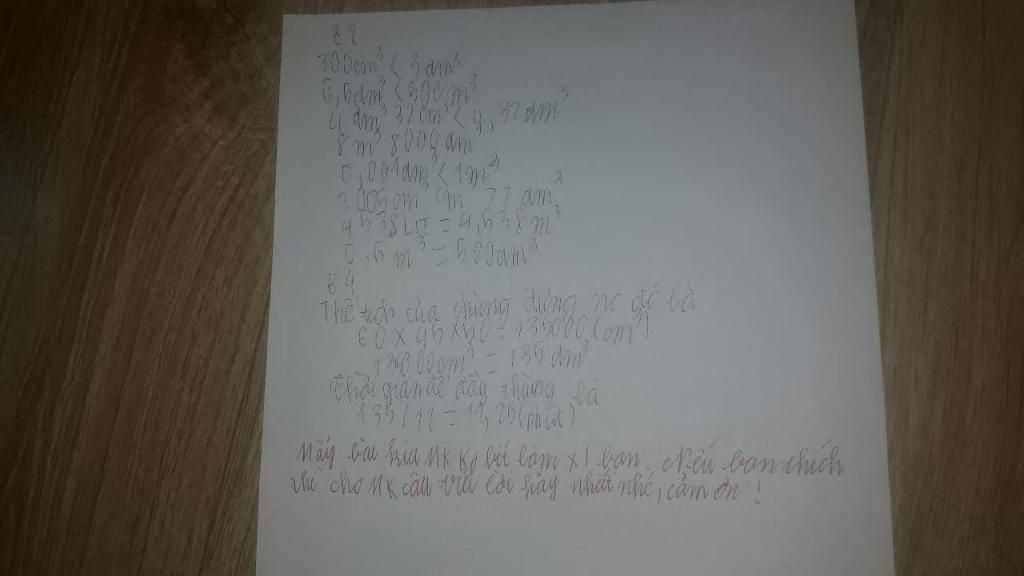 B2
300cm³ < 3dm³
0,5dm³ < 500m³
4 dm³ 32cm³ < 4,32dm³
8m³ 8000dm
0,001dm³ < 1m³
2005cm³ 77 dm³
4538Lít = 4,538m³
0,5m³ = 500dm³
B4
Thể tích của thùng đựng nc đó là
60 x 45 x 50 = 135000(cm³)
135000cm³ = 135dm³
Thời gian để đầy thùng là
135/12 = 11,25(phút)
Mấy bài kia MK Ko bít làm x l bạn. Nếu bạn thích
thì cho MK câu trả lời hay nhất nhé, cảm ơn !